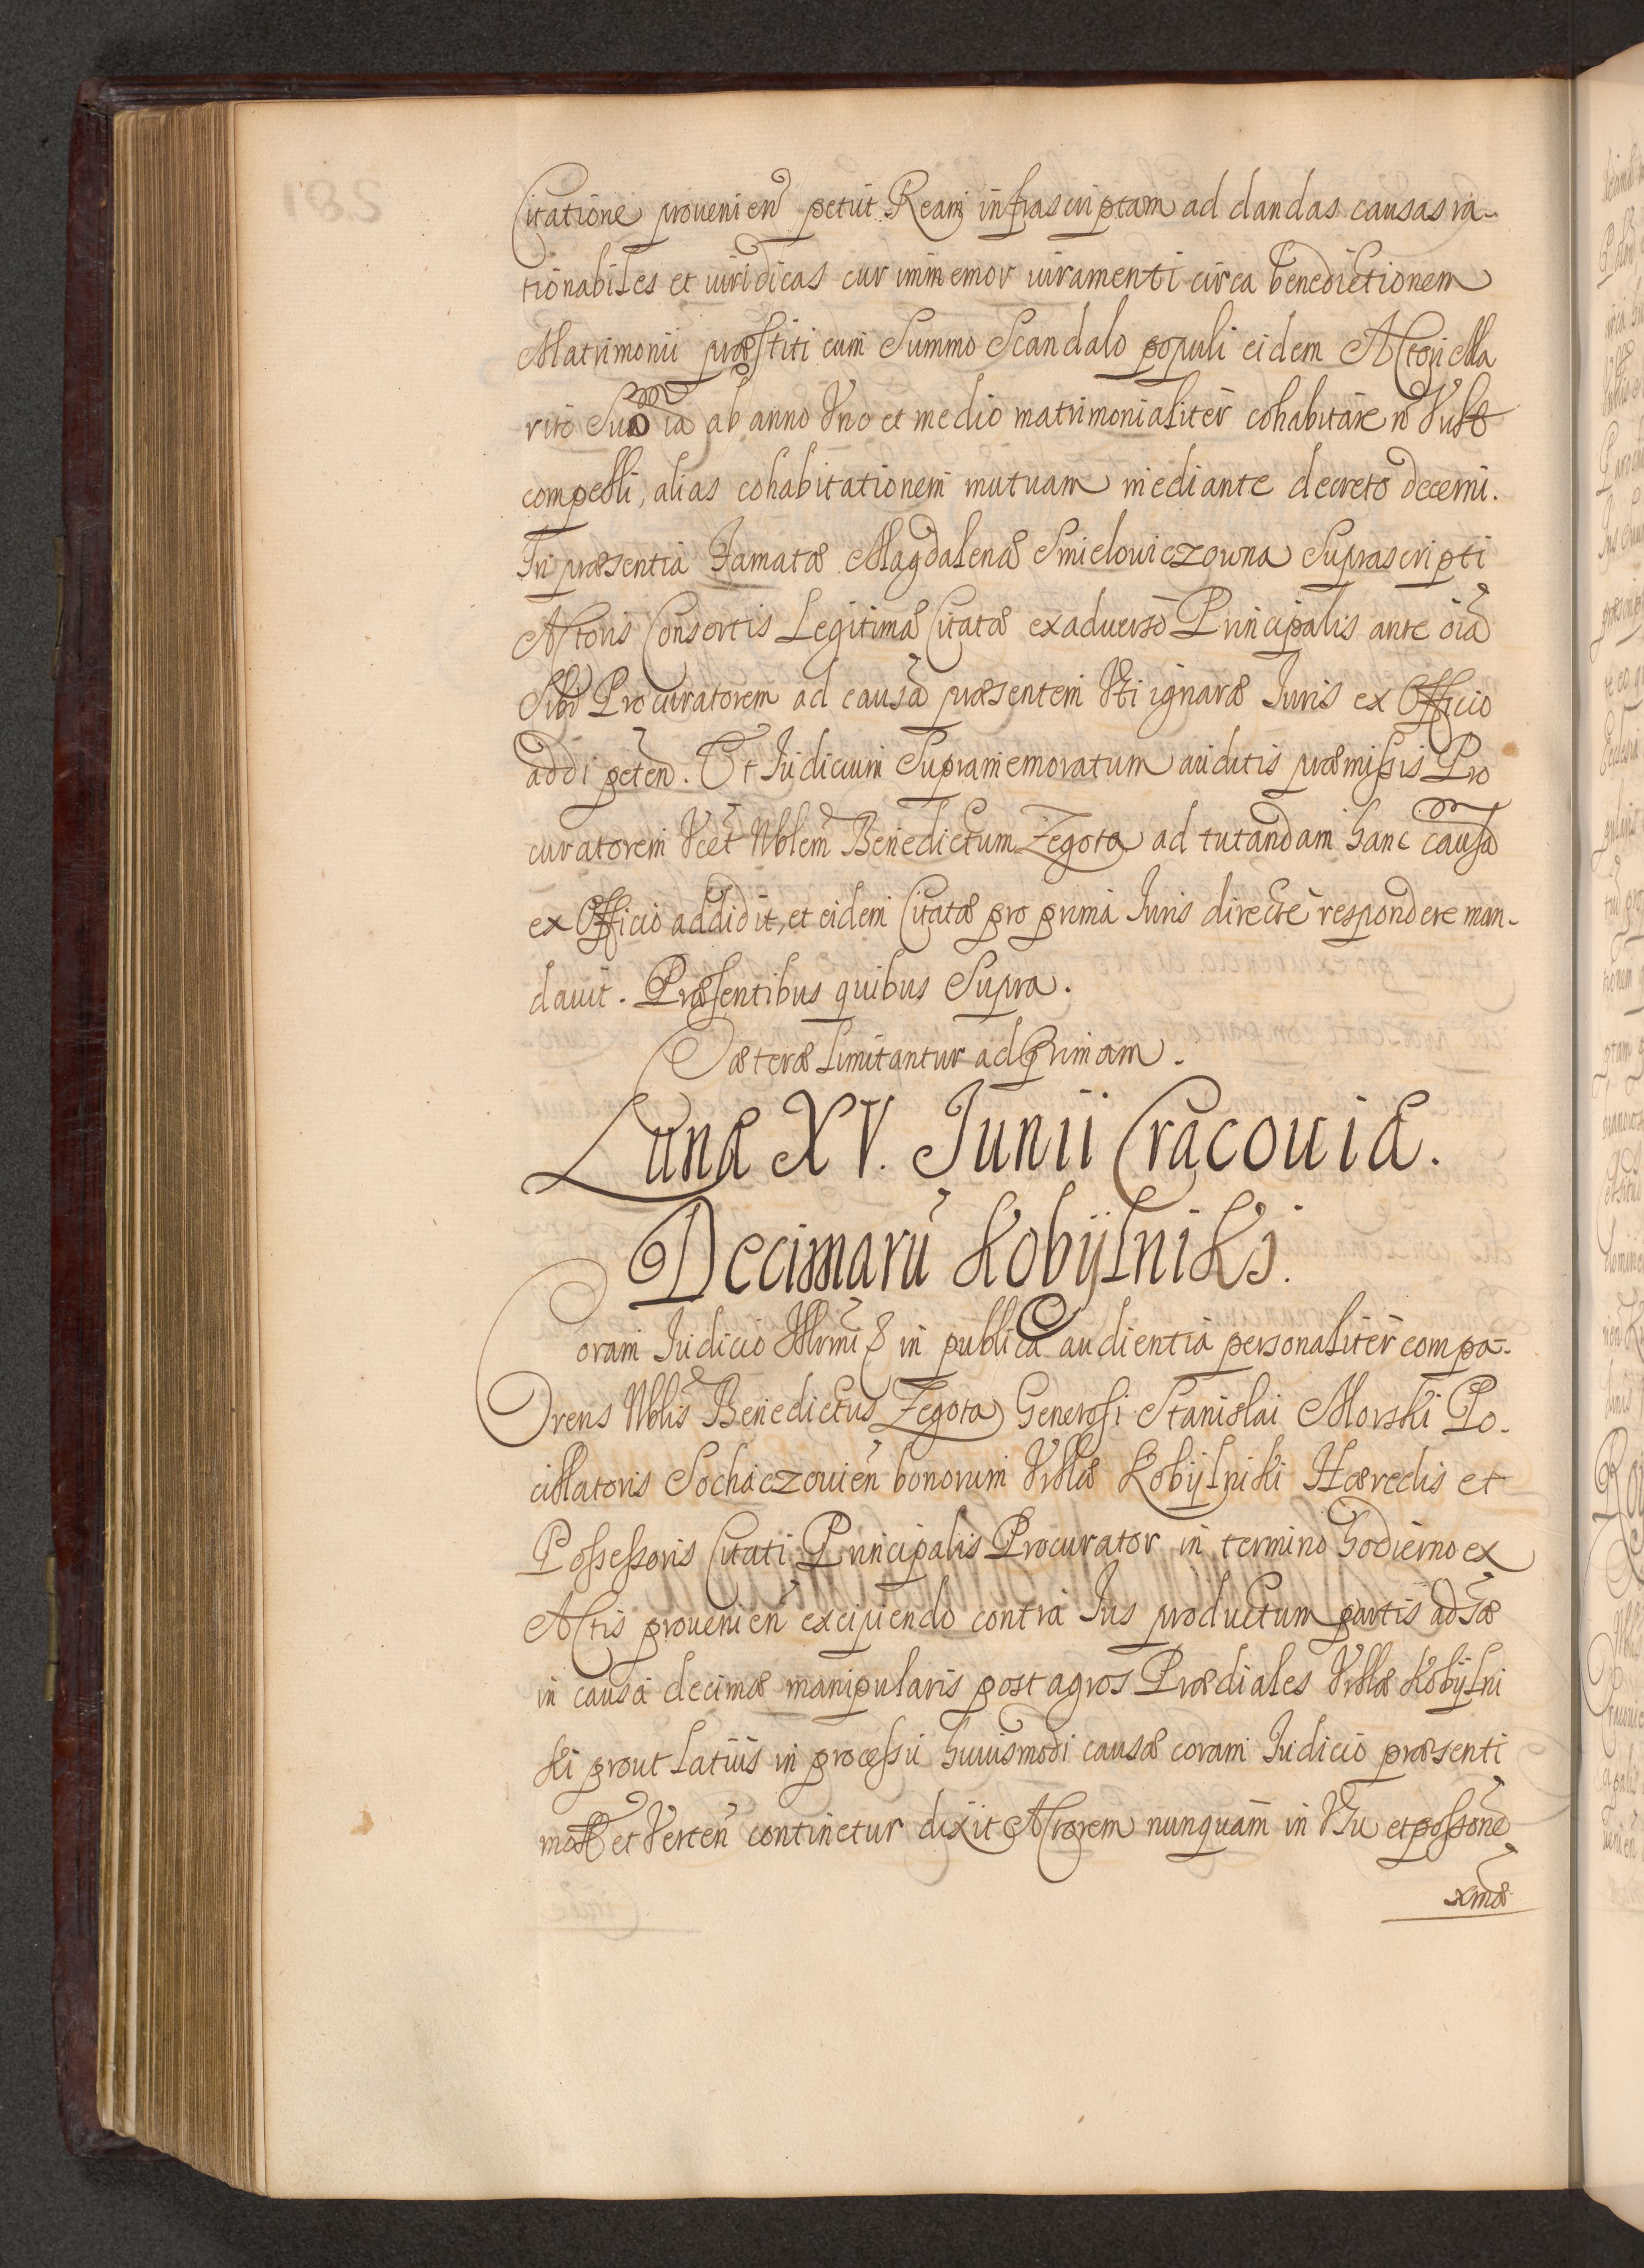 Citatione provenien petiit Ream infrascriptam ad dandas causas ra-
tionabiles et iuridicas cur immemor iuramenti circa benedictionem
Matrimonii præstiti cum Summo Scandalo populi eidem Actori Ma
rito Suo ia ab anno Uno et medio matrimonialiter cohabitare n̄ Vult
compelli, alias cohabitationem mutuam mediante decreto decerni.
In præsentia Famatæ Magdalenæ Smielowiczowna Suprascripti
Actoris Consortis Legitimæ Citatæ exaduerso Principalis ante oia
Sibi Procuratorem ad causā præsentem Uti ignaræ Iuris ex Officio
addi peten. Et Iudicium Supramemoratum auditis præmissis Pro
curatorem Vcet Nblem Benedictum Zegota ad tutandam hanc causā
ex Officio addidit, et eidem Citatæ pro prima Iuris directe respondere man-
davit. Præsentibus quibus Supra.
Cæteræ limitantur ad Primam.
Lunæ XV. Junii Cracouiæ.
Decimarū Kobÿlniki.
Coram Iudicio in publica audientia personaliter compa-
rens Nblis Benedictus Zegota Generosi Stanislai Morski Po-
cillatoris Sochaczouien bonorum Villæ Kobÿlniki Hæredis et
Possessoris Citati Principalis Procurator in termino hodierno ex
Actis provenien excipiendo contra Ius productum partis adsæ
in causa decimæ manipularis post agros Prædiales Villæ Kobÿlni
ki prout latius in processu huiusmodi causæ coram Iudicio præsenti
et Verten continetur dixit Actorem nunquam in Usu et possone
xmæ